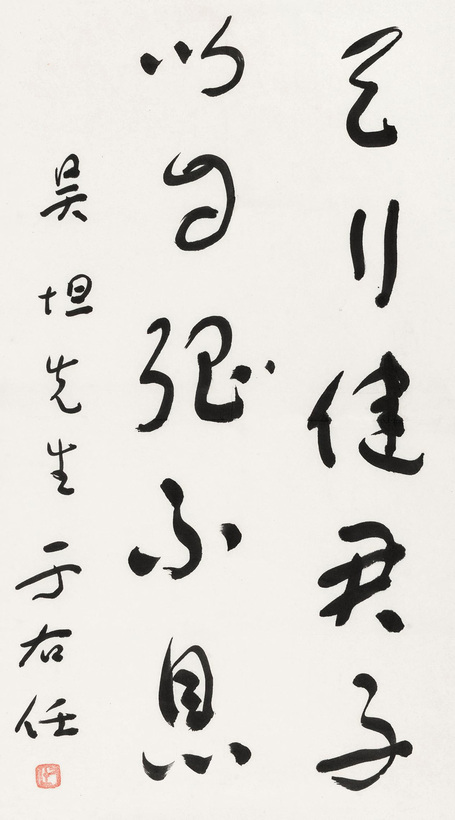 天行健君子
以自强不息
吴坦先生 于右任